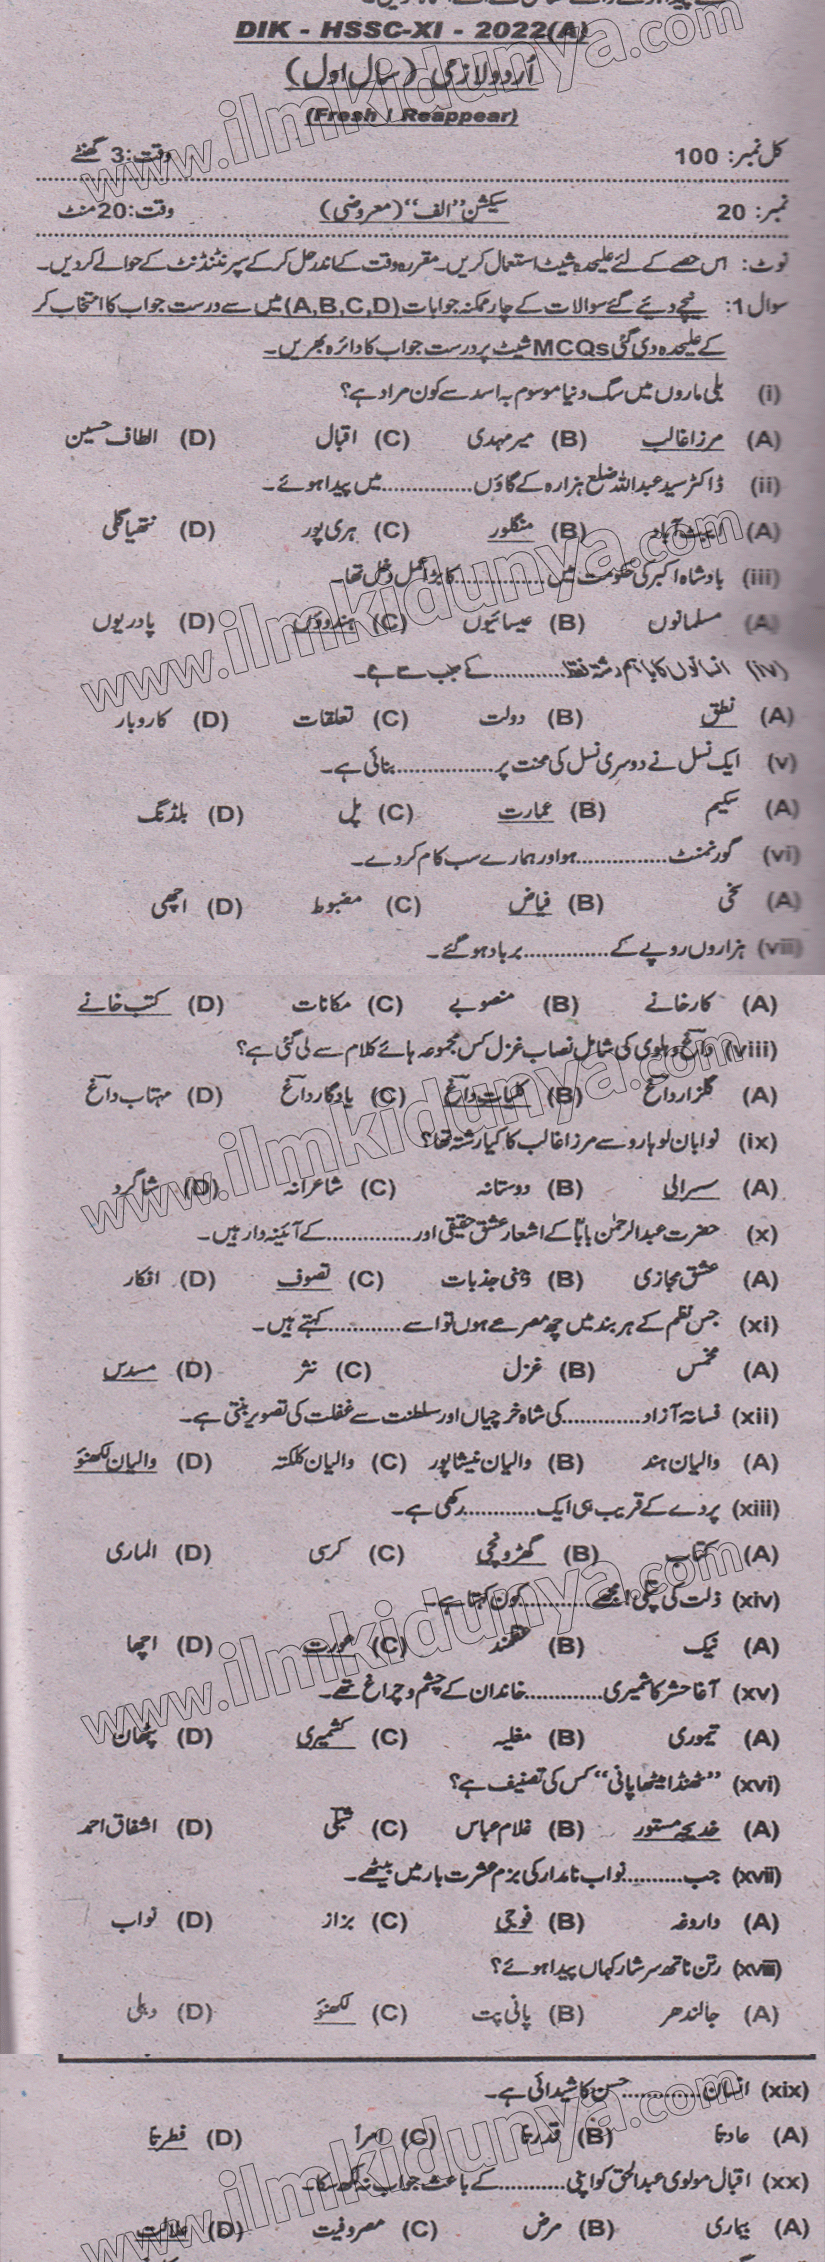 DIK - HSSC-XI - 2022(A)
اُردو لازمی (سال اول)
(Fresh / Reappear)
کل نمبر: 100 وقت: 3 گھنٹے
نمبر: 20 سیکشن ”الف“ (معروضی) وقت: 20 منٹ
نوٹ: اس حصے کے لئے علیحدہ شیٹ استعمال کریں۔ مقررہ وقت کے اندر حل کر کے سپرنٹنڈنٹ کے حوالے کر دیں۔
سوال 1: نیچے دیئے گئے سوالات کے چار ممکنہ جوابات (A,B,C,D) میں سے درست جواب کا انتخاب کر
کے علیحدہ دی گئی MCQs شیٹ پر درست جواب کا دائرہ بھریں۔
(i) بلی ماروں میں سگ دنیا موسوم بہ اسد سے کون مراد ہے؟
(A) مرزا غالب (B) میر مہدی (C) اقبال (D) الطاف حسین
(ii) ڈاکٹر سید عبداللہ ضلع ہزارہ کے گاؤں ............... میں پیدا ہوئے۔
(A) ایبٹ آباد (B) منگلور (C) ہری پور (D) نتھیا گلی
(iii) بادشاہ اکبر کی حکومت میں ............... کا بڑا عمل دخل تھا۔
(A) مسلمانوں (B) عیسائیوں (C) ہندوؤں (D) پادریوں
(iv) انسانوں کا باہم رشتہ فقط ............ کے سبب سے ہے۔
(A) نطق (B) دولت (C) تعلقات (D) کاروبار
(v) ایک نسل نے دوسری نسل کی محنت پر ............... بنائی ہے۔
(A) سکیم (B) عمارت (C) پل (D) بلڈنگ
(vi) گورنمنٹ ............... ہو اور ہمارے سب کام کر دے۔
(A) سخی (B) فیاض (C) مضبوط (D) اچھی
(vii) ہزاروں روپے کے .............. برباد ہو گئے۔
(A) کارخانے (B) منصوبے (C) مکانات (D) کتب خانے
(viii) داغؔ دہلوی کی شامل نصاب غزل کس مجموعہ ہائے کلام سے لی گئی ہے؟
(A) گلزار داغؔ (B) کلیات داغؔ (C) یادگار داغؔ (D) مہتاب داغؔ
(ix) نوابان لوہارو سے مرزا غالب کا کیا رشتہ تھا؟
(A) سسرالی (B) دوستانہ (C) شاعرانہ (D) شاگرد
(x) حضرت عبدالرحمٰن باباؒ کے اشعار عشق حقیقی اور .............. کے آئینہ دار ہیں۔
(A) عشق مجازی (B) ذہنی جذبات (C) تصوف (D) افکار
(xi) جس نظم کے ہر بند میں چھ مصرعے ہوں تو اسے ............ کہتے ہیں۔
(A) مخمس (B) غزل (C) نثر (D) مسدس
(xii) فسانۂ آزاد ............. کی شاہ خرچیاں اور سلطنت سے غفلت کی تصویر بنتی ہے۔
(A) والیان ہند (B) والیان نیشاپور (C) والیان کلکتہ (D) والیان لکھنؤ
(xiii) پردے کے قریب ہی ایک ............ رکھی ہے۔
(A) کتاب (B) گھڑونچی (C) کرسی (D) الماری
(xiv) ذلت کی پتلی! مجھے ........... کون کہتا ہے۔
(A) نیک (B) عقلمند (C) عورت (D) اچھا
(xv) آغا حشر کاشمیری ............. خاندان کے چشم و چراغ تھے۔
(A) تیموری (B) مغلیہ (C) کشمیری (D) پٹھان
(xvi) ”ٹھنڈا میٹھا پانی“ کس کی تصنیف ہے؟
(A) خدیجہ مستور (B) غلام عباس (C) شبلیؔ (D) اشفاق احمد
(xvii) جب .......... نواب نامدار کی بزم عشرت بار میں بیٹھے۔
(A) داروغہ (B) فوجی (C) بزاز (D) نواب
(xviii) رتن ناتھ سرشار کہاں پیدا ہوئے؟
(A) جالندھر (B) پانی پت (C) لکھنؤ (D) دہلی
(xix) انسان ............. حسن کا شیدائی ہے۔
(A) عادتاً (B) قدرتاً (C) امراً (D) فطرتاً
(xx) اقبال مولوی عبدالحق کو اپنی ........... کے باعث جواب نہ لکھ سکا۔
(A) بیماری (B) مرض (C) مصروفیت (D) علالت
www.ilmkidunya.com
www.ilmkidunya.com
www.ilmkidunya.com
www.ilmkidunya.com
www.ilmkidunya.com